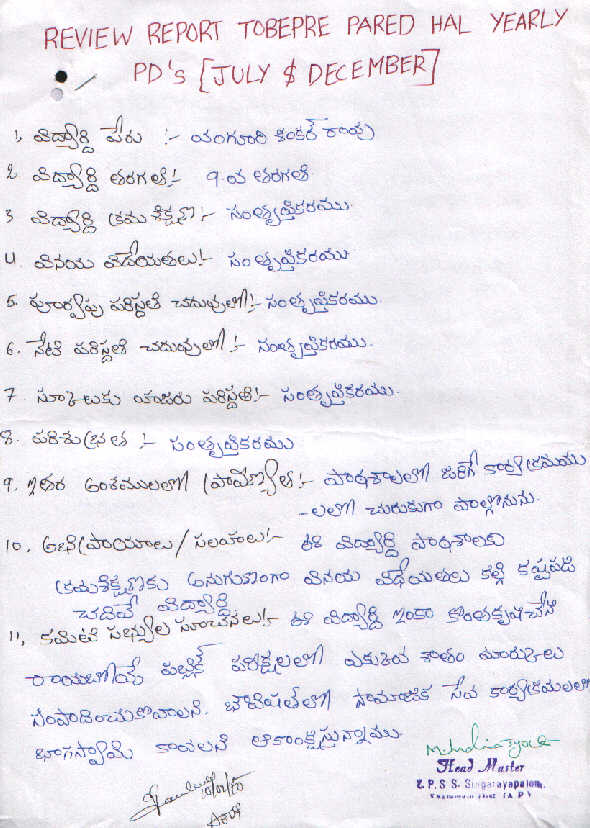 REVIEW REPORT TOBEPRE PARED HAL YEARLY
PD's [JULY & DECEMBER]
1. విద్యార్ధి పేరు :- యంగూరి కింకర్ రావు
2. విద్యార్ధి తరగతి:- 9-వ తరగతి
3. విద్యార్ధి క్రమశిక్షణ :- సంతృప్తికరము.
4. వినయ విధేయతలు:- సంతృప్తికరము
5. పూర్వపు పరిస్థితి చదువులో:- సంతృప్తికరము.
6. నేటి పరిస్థితి చదువులో:- సంతృప్తికరము.
7. స్కూలుకు హాజరు పరిస్థితి:- సంతృప్తికరము.
8. పరిశుభ్రత :- సంతృప్తికరము
9. ఇతర అంశములలో ప్రావీణ్యత :- పాఠశాలలో జరిగే కార్యక్రమము
-లలో చురుకుగా పాల్గొనును.
10. అభిప్రాయాలు / సలహాలు:- ఈ విద్యార్ధి పాఠశాలకు
క్రమశిక్షణకు అనుగుణంగా వినయ విధేయతలు కల్గి కష్టపడి
చదివే విద్యార్ధి
11, కమిటి సభ్యుల సూచనలు:- ఈ విద్యార్ధి ఇంకా కొంతకృషిచేసి
రాబోయే పబ్లిక్ పరీక్షలలో ఎక్కువ శాతం మార్కులు
సంపాదించుకోవాలని. భవిష్యత్‌లో సామాజిక సేవ కార్యక్రమలలో
భాగస్వామి కావాలని ఆకాంక్షిస్తున్నాము.
Head Master
E. P. S. S. Singarayapalem,